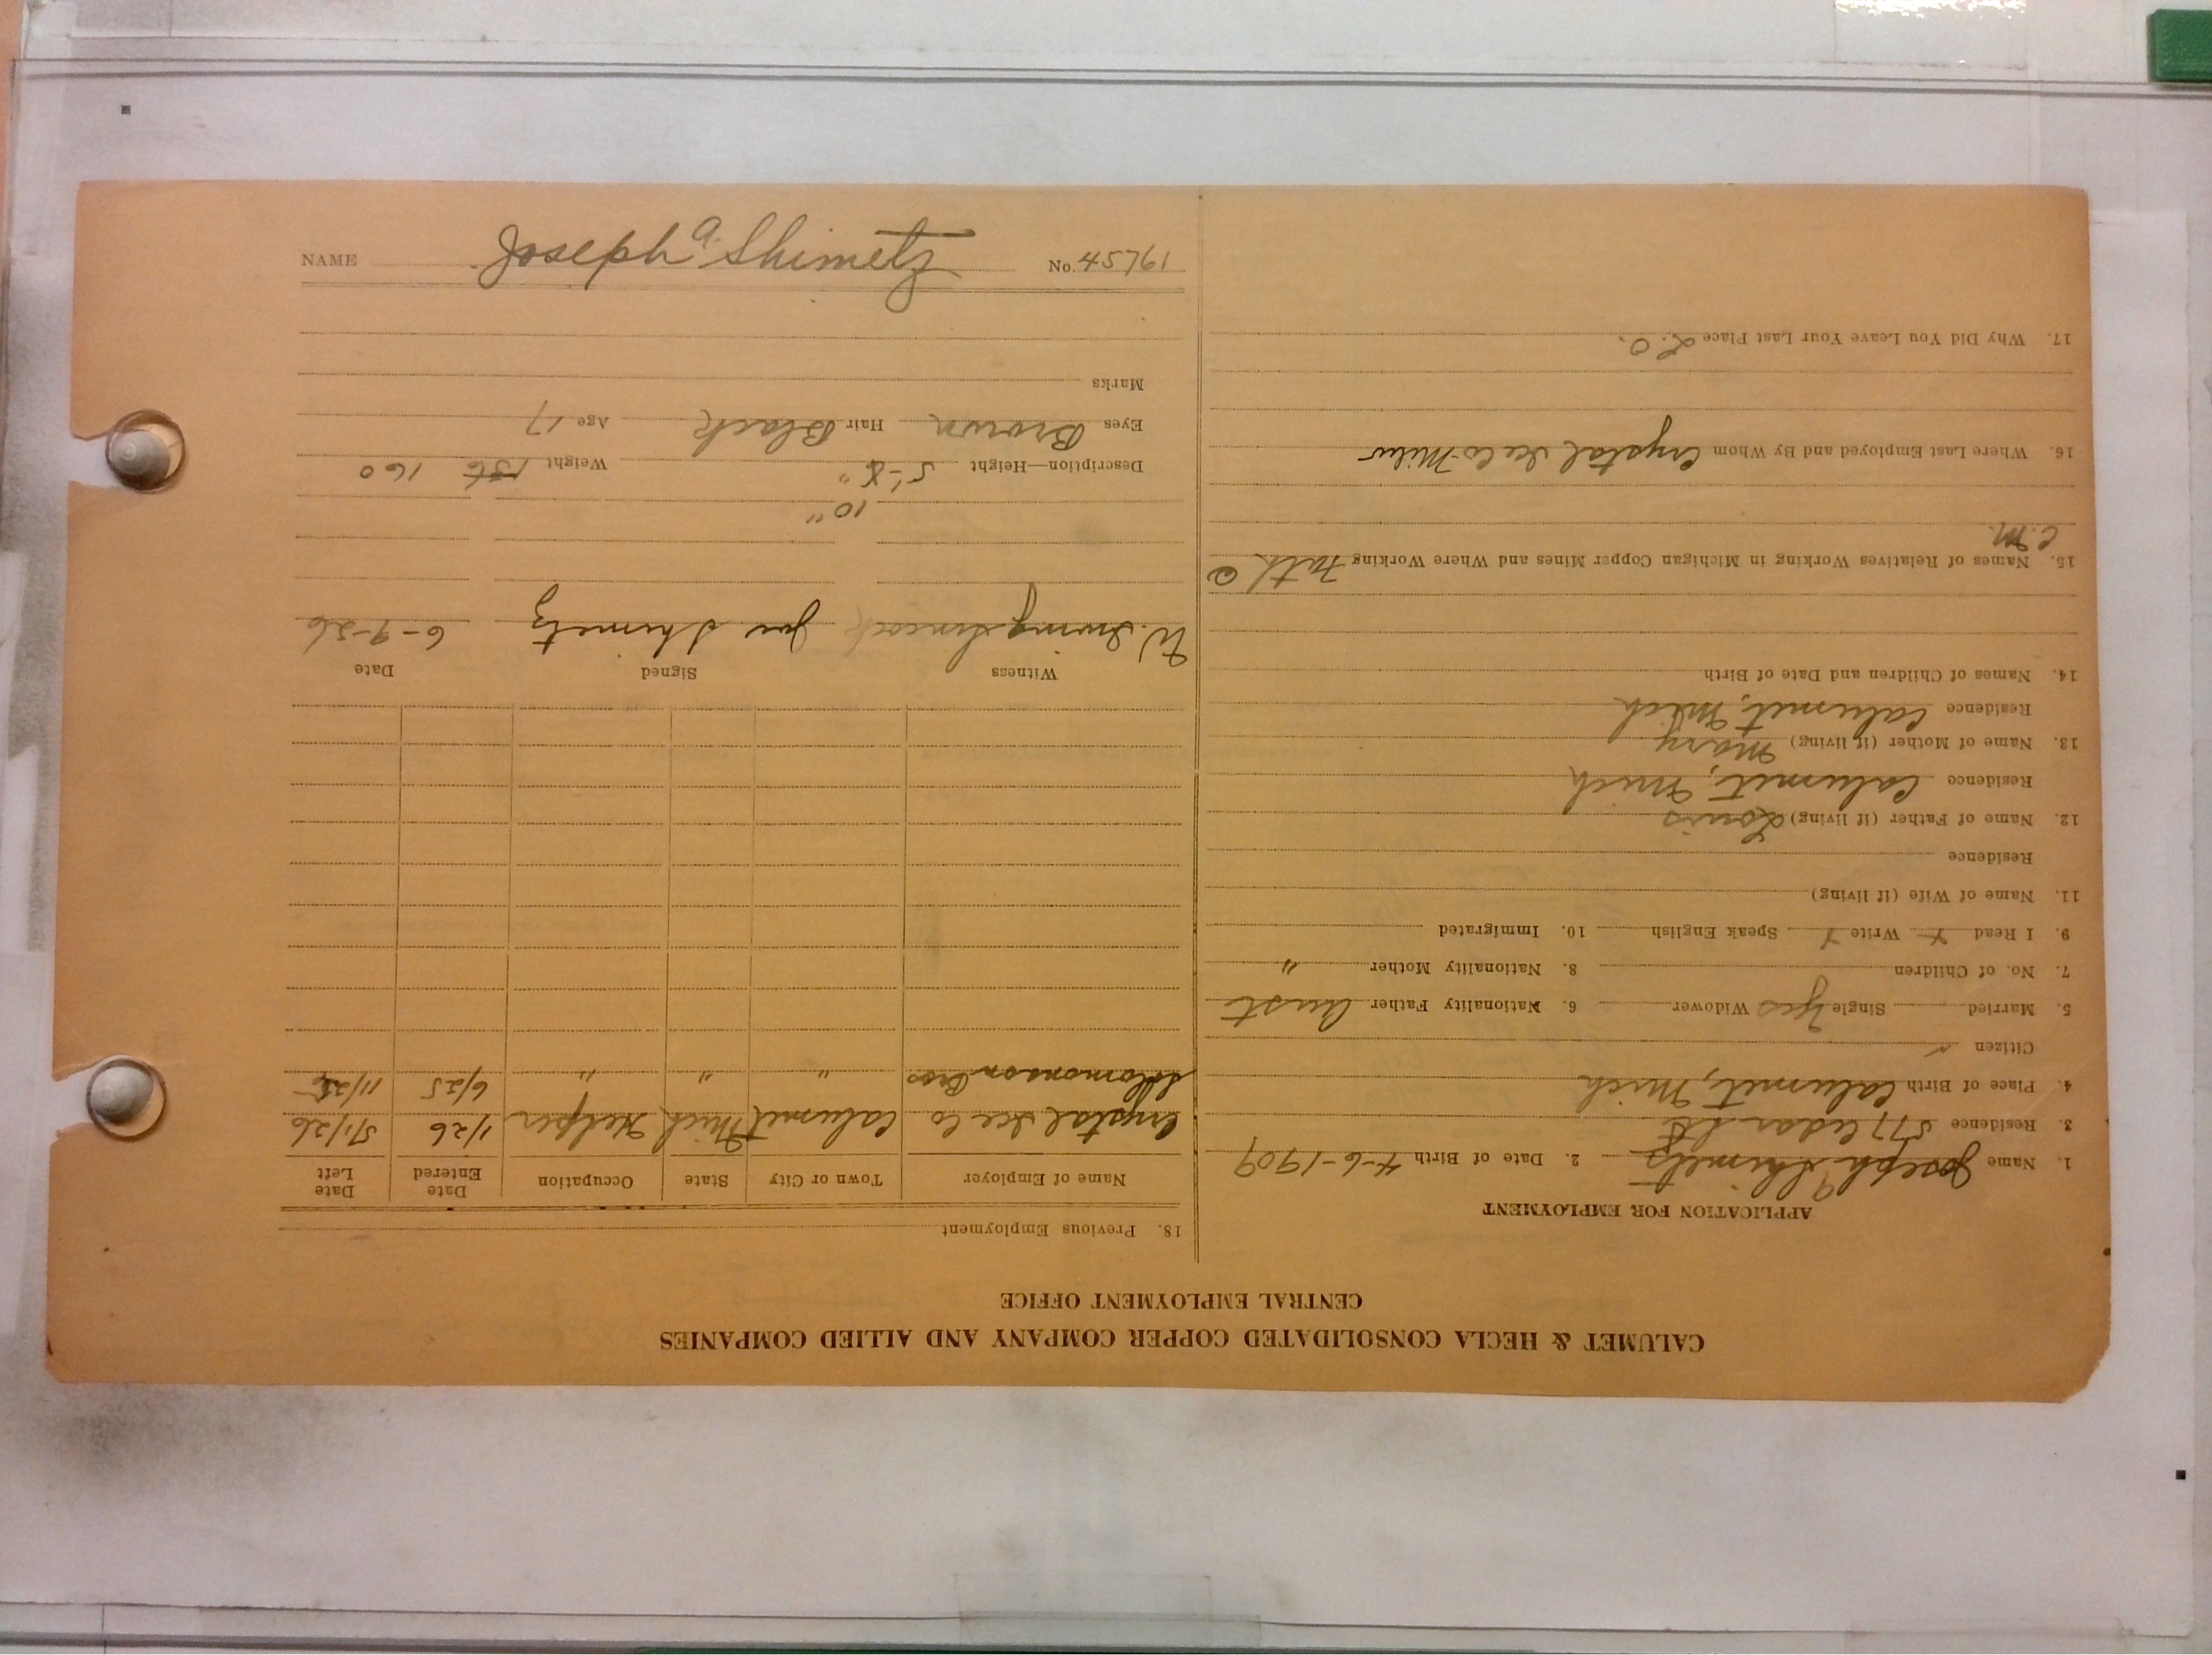 CALUMET & HECLA CONSOLIDATED COPPER COMPANY AND ALLIED COMPANIES
CENTRAL EMPLOYMENT OFFICE
APPLICATION FOR EMPLOYMENT
1. Name Joseph A Shimetz 2. Date of Birth 4-6-1909
3. Residence 577 Cedar St
4. Place of Birth Calumet, Mich
Citizen
5. Married Single Yes Widower 6. Nationality Father Aust
7. No. of Children 8. Nationality Mother "
9. I Read Write Speak English 10. Immigrated
11. Name of Wife (if living)
Residence
12. Name of Father (if living) Louis
Residence Calumet, Mich
13. Name of Mother (if living) Mary
Residence Calumet, Mich
14. Names of Children and Date of Birth
15. Names of Relatives Working in Michigan Copper Mines and Where Working Fath @
C.M.
16. Where Last Employed and By Whom Crystal Ice Co
17. Why Did You Leave Your Last Place L.O.
18. Previous Employment
Name of Employer Town or City State Occupation Date Entered Date Left
Crystal Ice Co Calumet Mich Helper 1/26 5/1/26
Solomonson Bros " " " 6/25 11/25
Witness Signed Date
W. Irving Joe Shimetz 6-9-26
10"
Description—Height 5'-8" Weight 136 160
Eyes Brown Hair Black Age 17
Marks
NAME Joseph A. Shimetz No. 45761